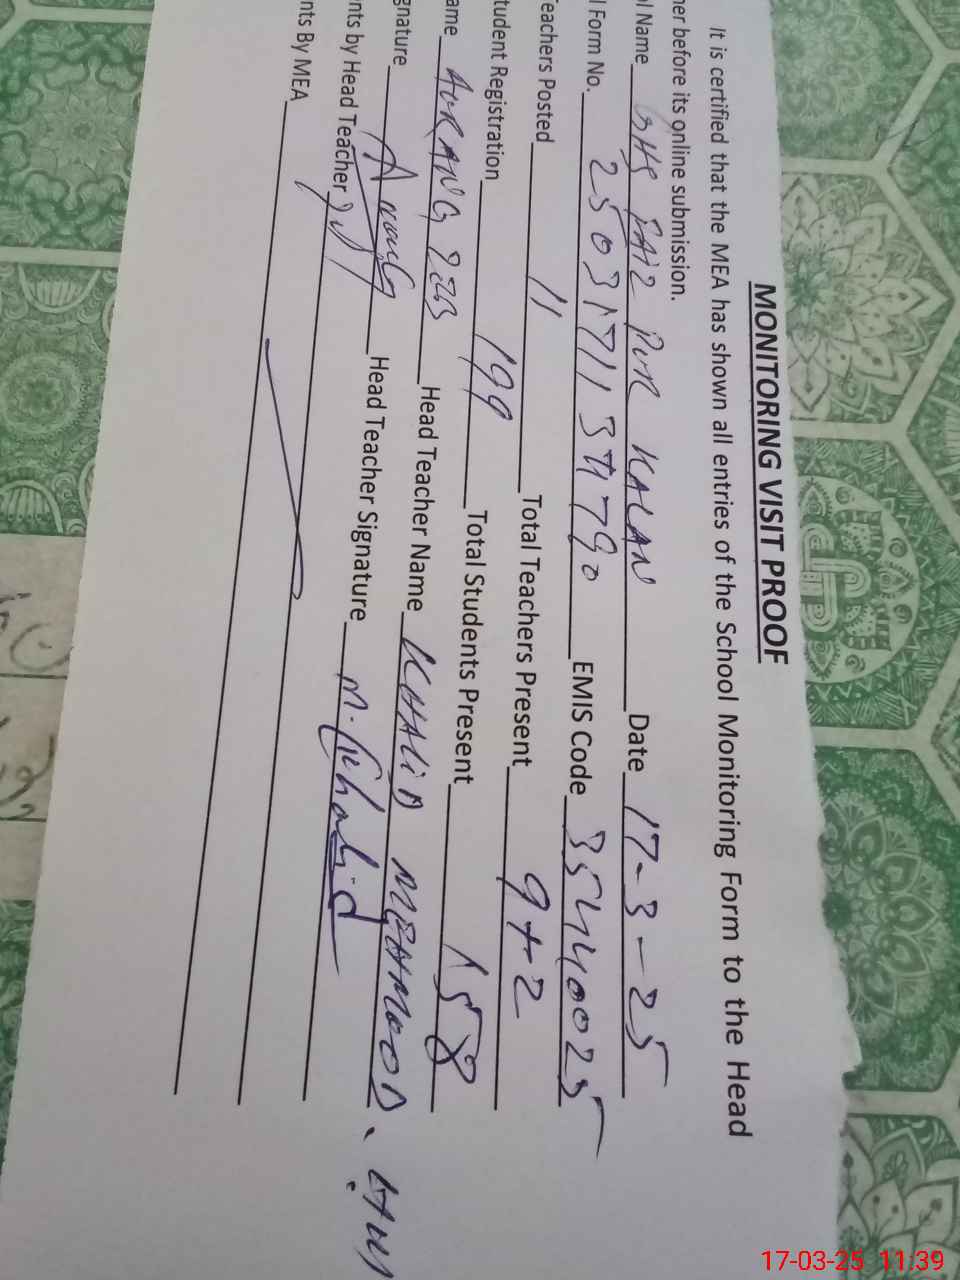 MONITORING VISIT PROOF
It is certified that the MEA has shown all entries of the School Monitoring Form to the Head
her before its online submission.
ol Name GHS FAIZ PUR KALAN Date 17-3-25
l Form No. EMIS Code 35440025
Teachers Posted 11 Total Teachers Present 9+2
tudent Registration 199 Total Students Present 158
ame AURANG ZEB Head Teacher Name KHALID MEHMOOD
gnature Aurang Head Teacher Signature M. Khalid
nts by Head Teacher
nts By MEA
17-03-25 11:39